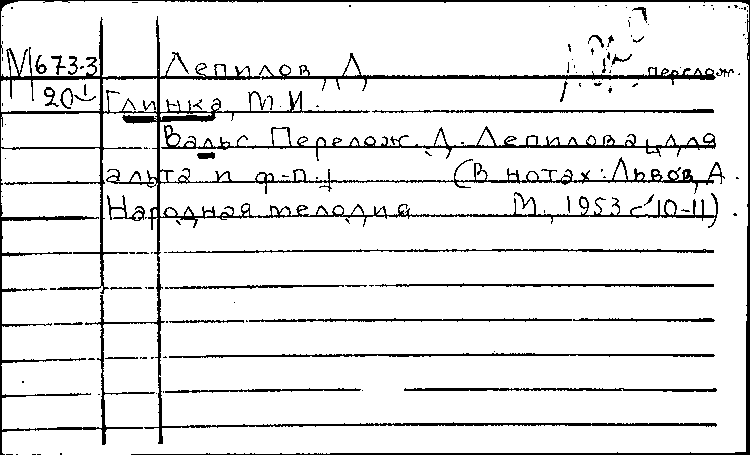 М 673-3 Лепилов, Д. перелож.
20 Глинка, М.И.
Вальс. Перелож. Д. Лепилова для
альта и ф-п. (В нотах: Львов, А.
Народная мелодия М., 1953 с 10-11).